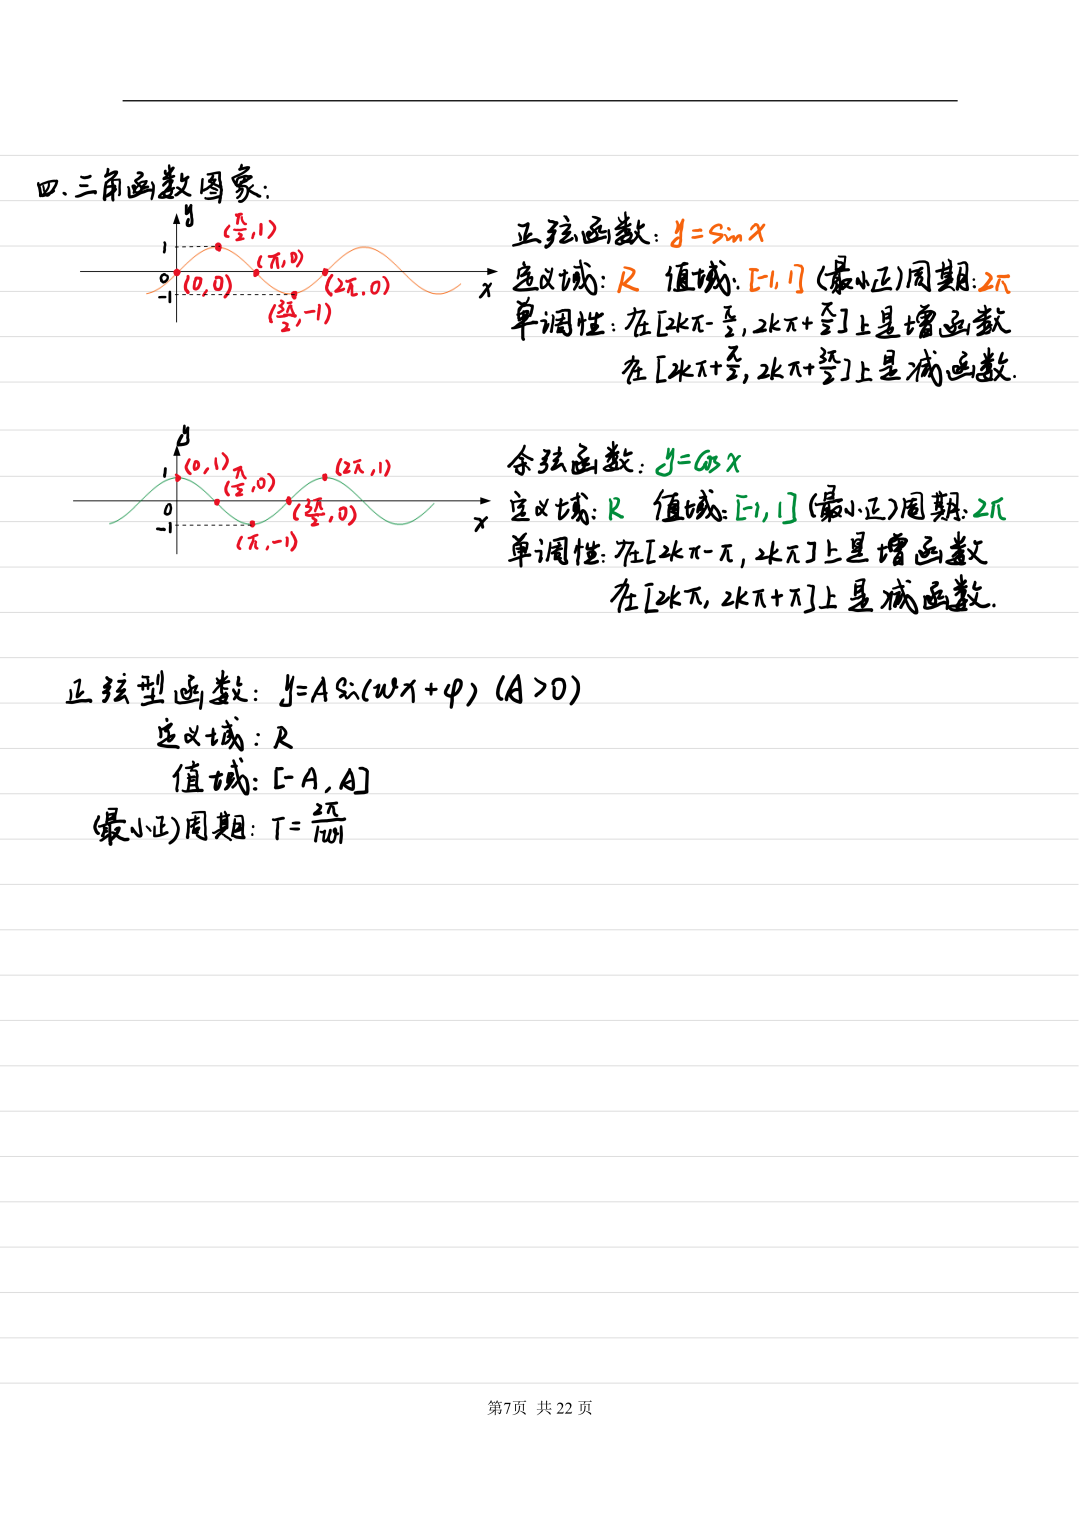 四.三角函数图象:
y
1
0
-1
x
(π/2,1)
(π,0)
(0,0)
(2π,0)
(3π/2,-1)
正弦函数: y=sin x
定义域: R 值域: [-1,1] (最小正)周期: 2π
单调性: 在[2kπ-π/2, 2kπ+π/2]上是增函数
在[2kπ+π/2, 2kπ+3π/2]上是减函数.
y
1
0
-1
x
(0,1)
(π/2,0)
(2π,1)
(3π/2,0)
(π,-1)
余弦函数: y=cos x
定义域: R 值域: [-1,1] (最小正)周期: 2π
单调性: 在[2kπ-π, 2kπ]上是增函数
在[2kπ, 2kπ+π]上是减函数.
正弦型函数: y=A sin(wx+φ) (A>0)
定义域: R
值域: [-A, A]
(最小正)周期: T=2π/|w|
第7页 共 22 页